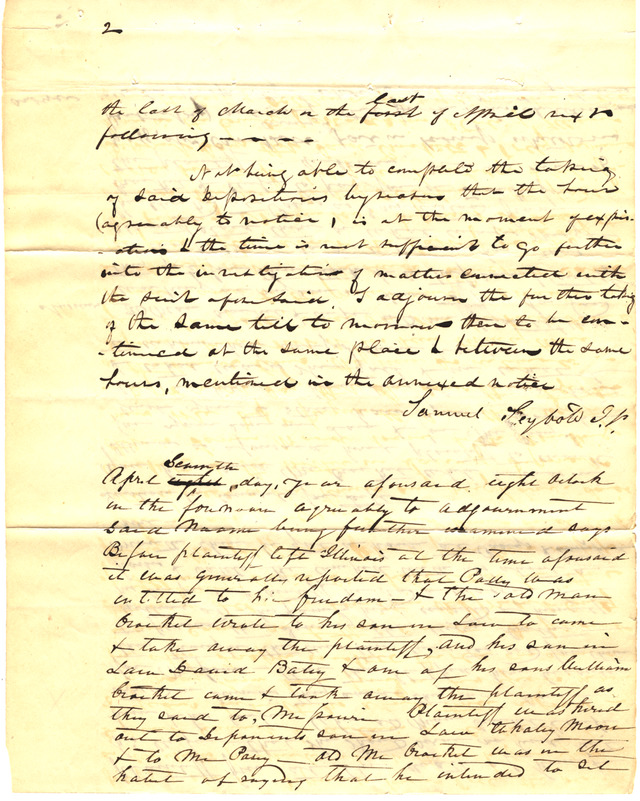 2
the last of March or the last first of April next
following - - - -
Not being able to compleat the taking
of said Depositions by reason that the hour
(agreeably to notice, is at the moment of expir-
-ation & the time is not sufficient to go further
into the investigation of matters connected with
the suit aforesaid, I adjourn the further taking
of the same till to morrow then to be con-
-tinued at the same place & between the same
hours, mentioned in the annexed notice
Samuel Seybold J.P.
April eight Seventh day, year aforesaid eight Oclock
in the forenoon agreeably to adjournment
said Naomi being further examined says
Before plaintiff left Illinois at the time aforesaid
it was generally reported that Polly was
intitled to his freedom - & the old man
Crocket wrote to his son in Law to come
& take away the plaintiff, and his son in
Law David Baty & one of his sons William
Crocket came & took away the plaintiff, as
they said to, Missouri Plaintiff was hired
out to Deponents son in Law Moore
& to Mr - old Mr Crocket was in the
habit of saying that he intended to set